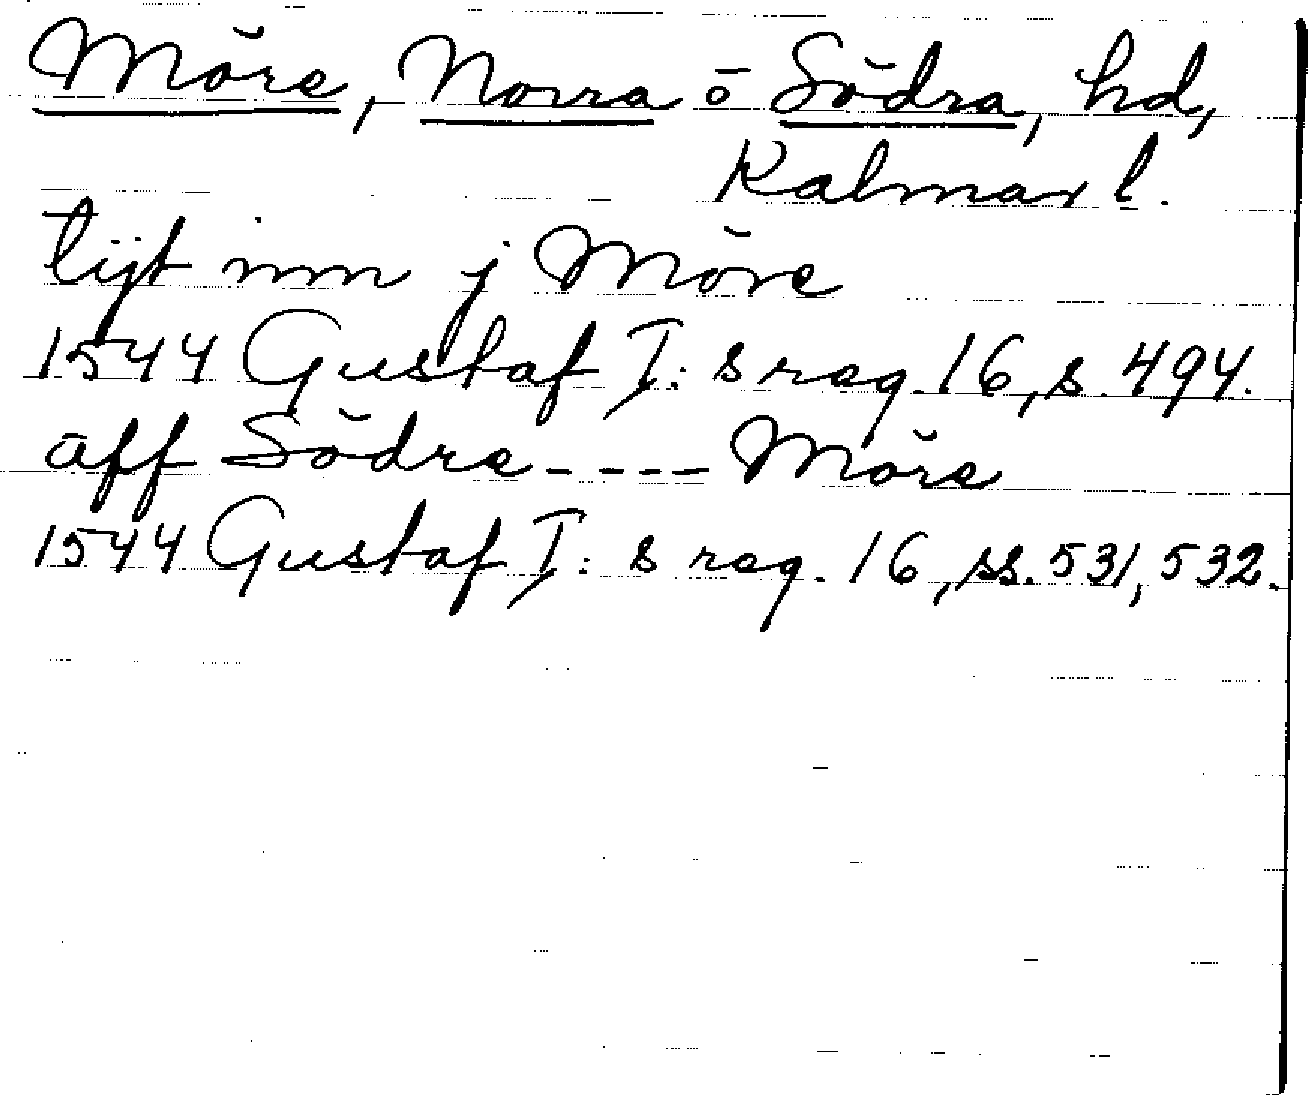 Möre, Norra o Södra, hd,
Kalmar l.
lijt inn j Möre
1544 Gustaf I:s reg. 16, s. 494.
aff Södre ---- Möre
1544 Gustaf I:s reg. 16, ss. 531, 532.